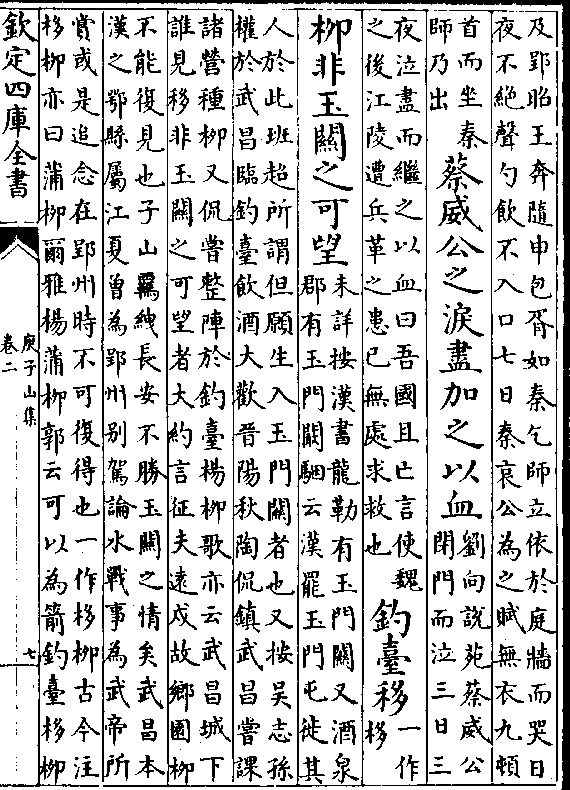 及郢昭王奔隨申包胥如秦乞師立依於庭牆而哭日
夜不絕聲勺飲不入口七日秦哀公為之賦無衣九頓
首而坐秦
師乃出
蔡威公之淚盡加之以血
劉向說苑蔡威公
閉門而泣三日三
夜泣盡而繼之以血曰吾國且亡言使魏
之後江陵遭兵革之患已無處求救也
釣臺移
一作
栘
柳非玉關之可望
未詳按漢書龍勒有玉門關又酒泉
郡有玉門闕駰云漢罷玉門屯徙其
人於此班超所謂但願生入玉門關者也又按吳志孫
權於武昌臨釣臺飲酒大歡晉陽秋陶侃鎮武昌嘗課
諸營種柳又侃嘗整陣於釣臺楊柳歌亦云武昌城下
誰見移非玉關之可望者大約言征夫遠戍故鄉園柳
不能復見也子山羈絏長安不勝玉關之情矣武昌本
漢之鄂縣屬江夏曾為郢州别駕論水戰事為武帝所
賞或是追念在郢州時不可復得也一作栘柳古今注
栘柳亦曰蒲柳爾雅楊蒲柳郭云可以為箭釣臺栘柳
欽定四庫全書
庾子山集
卷二
七